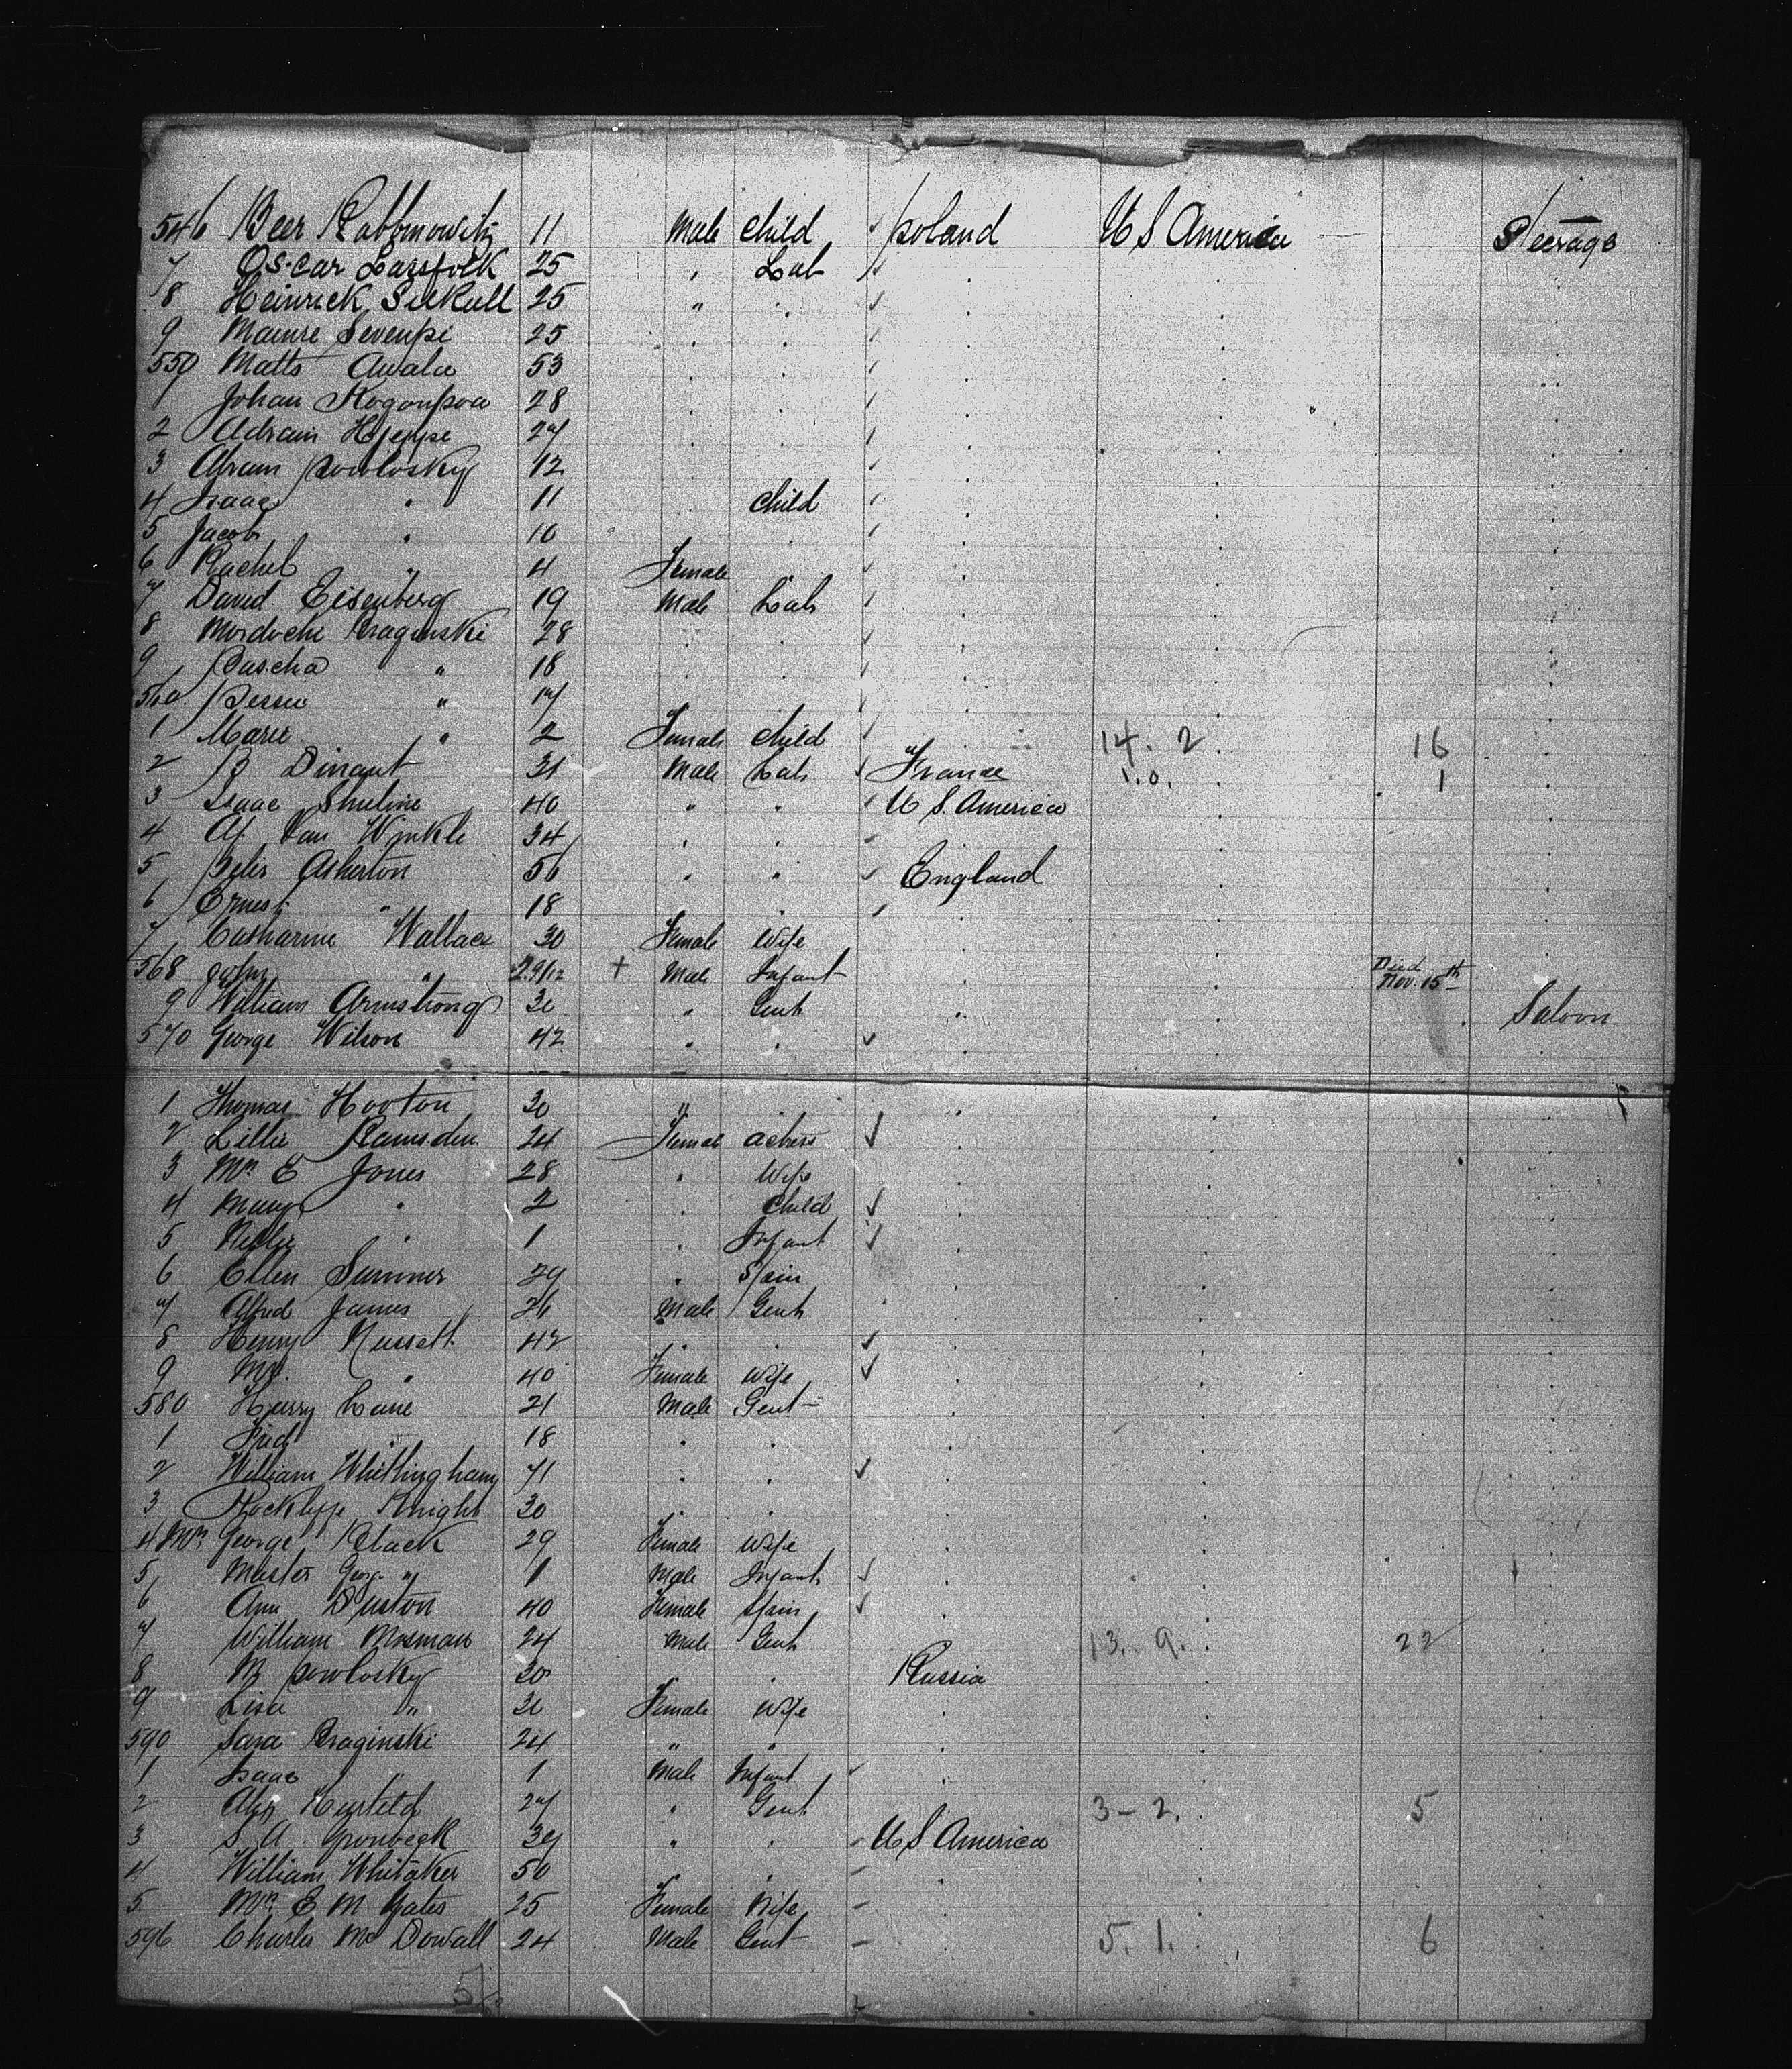 546 Beer Rabbmowitz 11 Male Child ✓ Poland U S America Steerage
7 Oscar Larsfolk 25 " Lab ✓
8 Heinrick Silkull 25 " " ✓
9 25
550 Matts Awala 53
1 Johan 28
2 Adrain 27
3 Abram Powlosky 12
4 Isaac " 11 Child
5 Jacob " 10
6 Rachel " 4 Female
7 David Eisenberg 19 Male Lab
8 Mordoche Braginski 28
9 Bascha " 18
560 Bessie " 17
1 Marie " 2 Female Child 14. 2. 16
2 B Dinant 31 Male Lab ✓ France 1. 0. 1
3 Isaac Shuline 40 " " U S. America
4 Al Van Winkle 34
5 Peter Asherton 56 " " ✓ England
6 Ernest " 18
7 Catharine Wallace 30 Female Wife
568 John " 2 9/12 + Male Infant Died Nov. 15th
9 William Armstrong 30 " Gent Saloon
570 George Wilson 42 " " ✓
1 Thomas Hooton 30 "
2 Lillie Ramsden 24 Female Actress ✓
3 Mrs E Jones 28 " Wife
4 Mary " 2 " Child ✓
5 Nellie " 1 " Infant ✓
6 Ellen Sumner 29 " Spin
7 Alfred James 26 Male Gent
8 Henry Nussett 42 ✓
9 Mrs. " 40 Female Wife ✓
580 Harry Lane 21 Male Gent
1 Fred " 18
2 William Whittingham 71 ✓
3 Rockliffe Knight 30
4 Mrs George Black 29 Female Wife
5 Master Geog. " 1 Male Infant ✓
6 Ann Duston 40 Female Spin ✓
7 William Mosman 24 Male Gent 13. 9. 22
8 M Powlosky 30 Russia
9 Lisa " 30 Female Wife
590 Sara Braginski 24 " "
1 Isaac " 1 Male Infant ✓
2 27 " Gent 3 - 2. 5
3 S. A. Gronbeck 39 " U S America
4 William Whitaker 50
5 Mrs E M Yates 25 Female Wife
596 Charles Mc Dowall 24 Male Gent 5. 1. 6